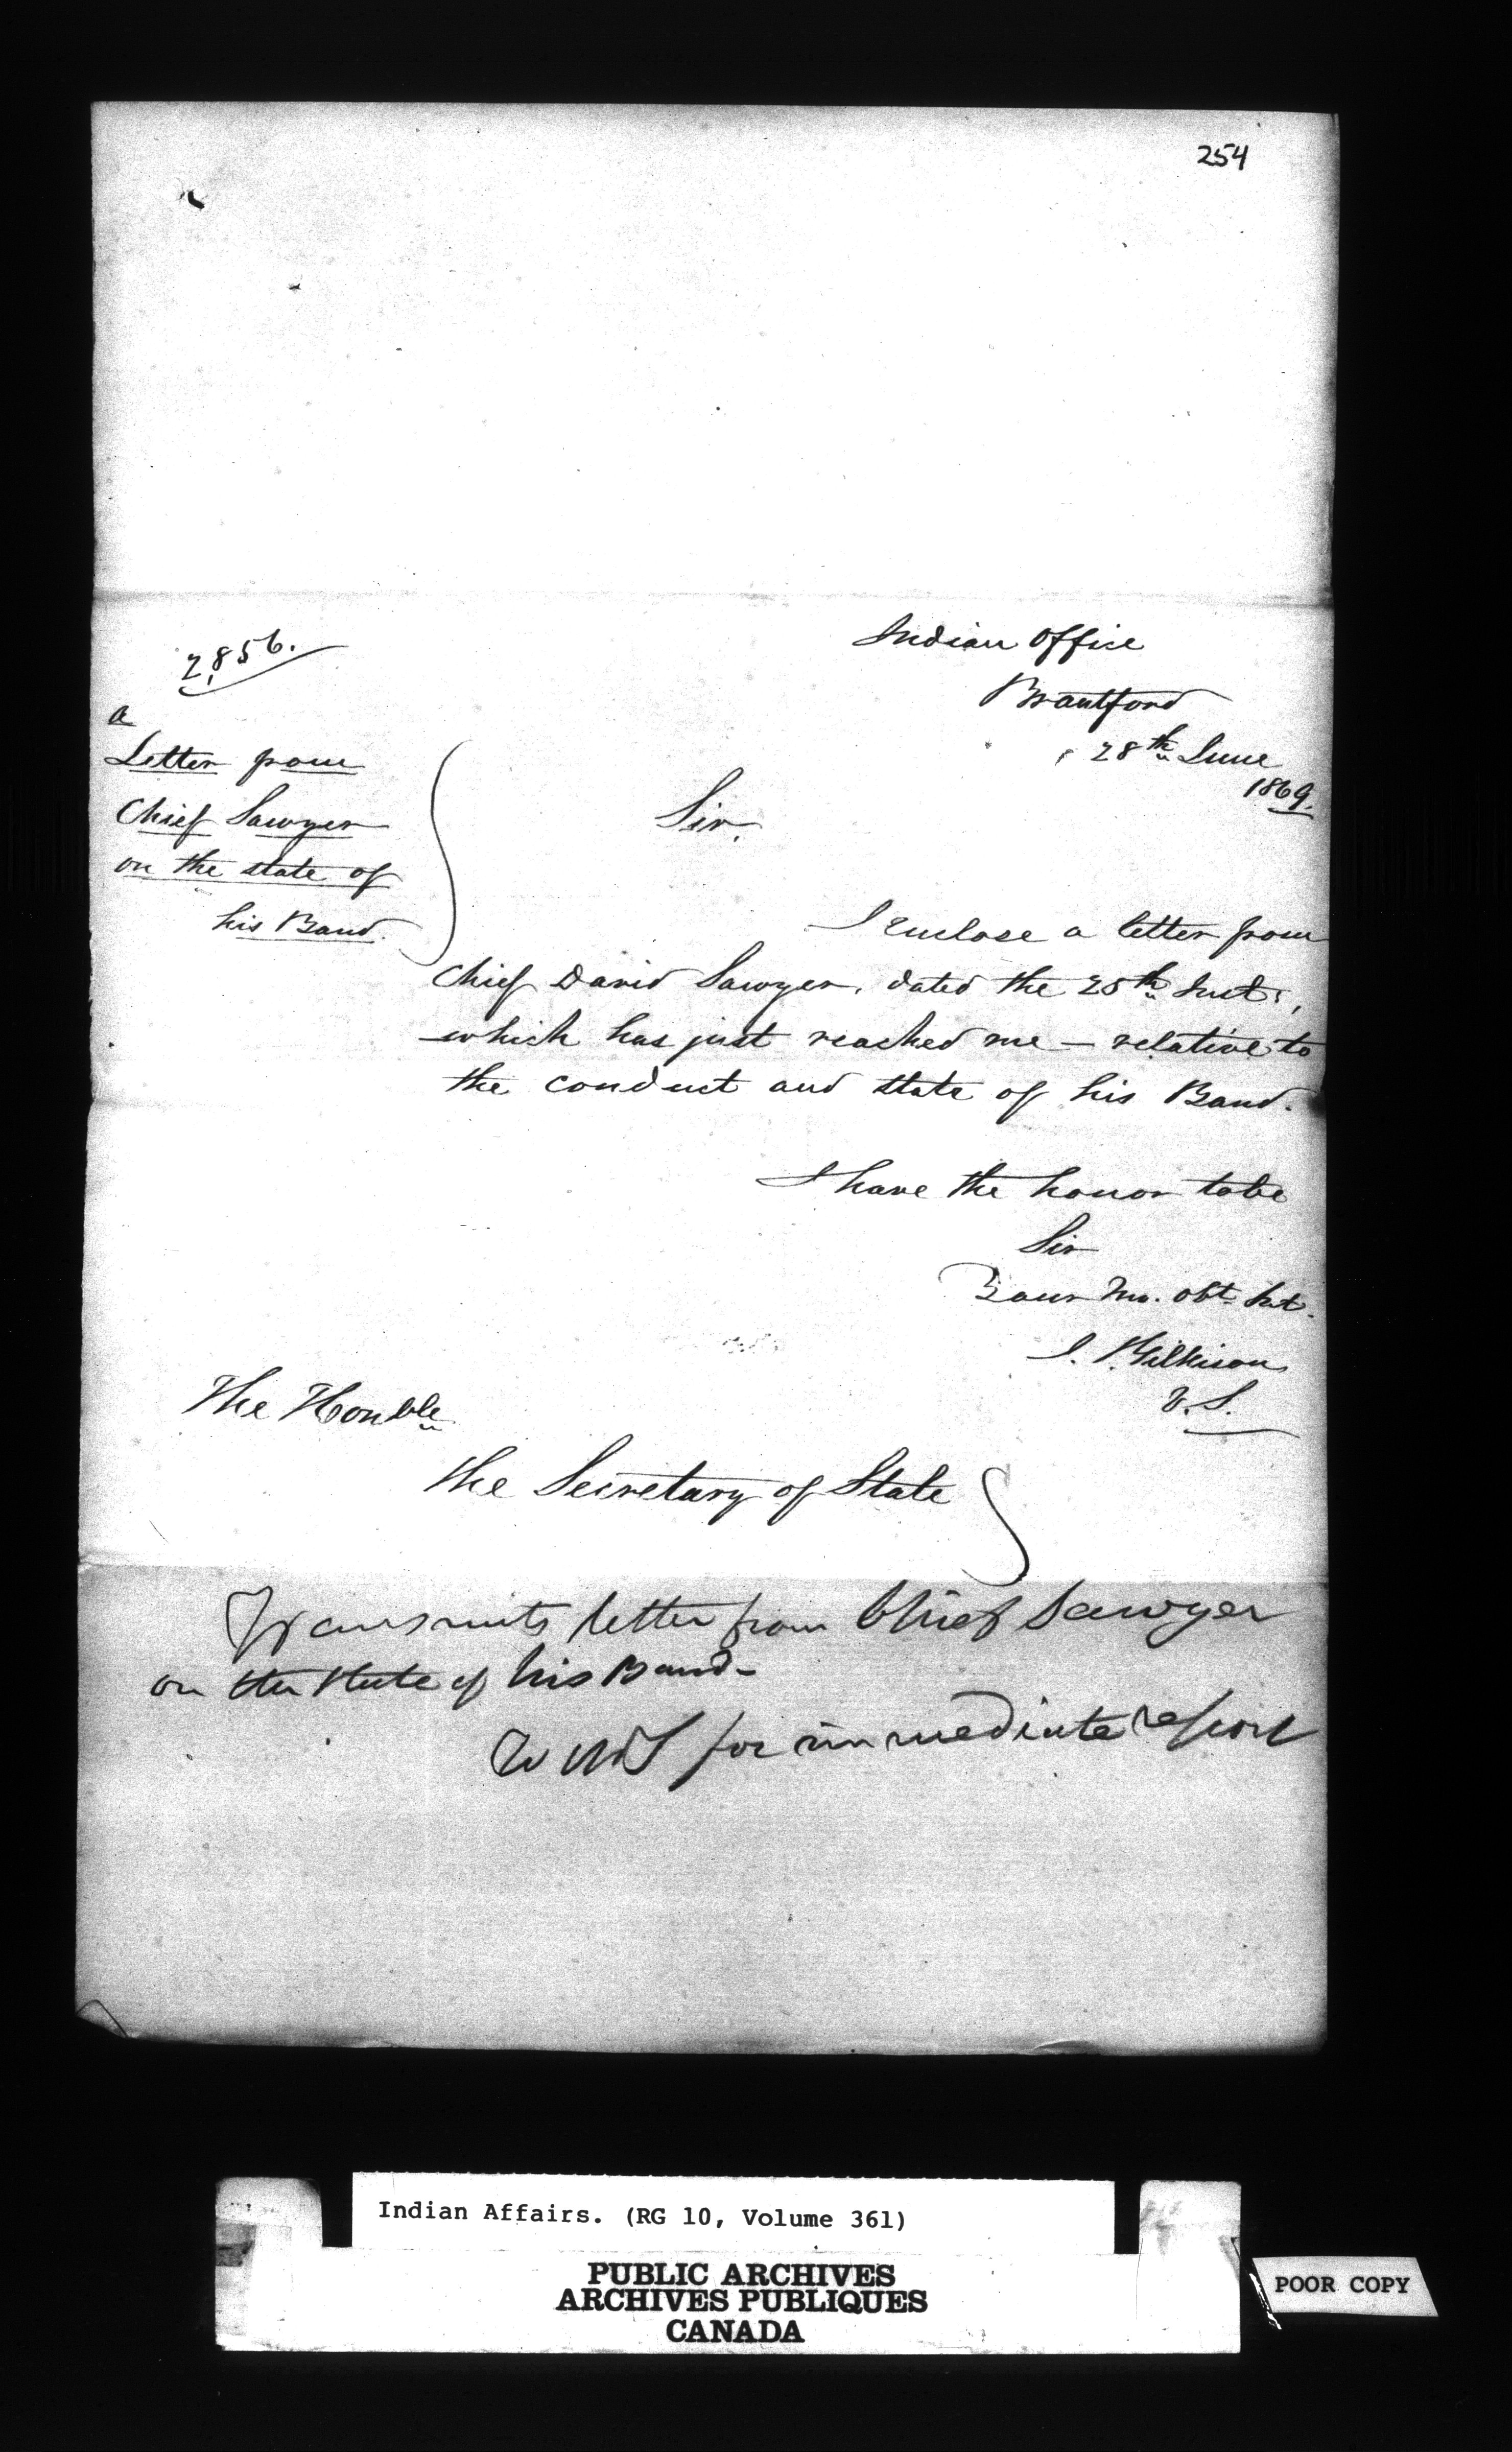 254
2856.
a
Letter from
Chief Sawyer
on the state of
his Band.
Indian Office
Brantford
28th June
1869.
Sir.
I enclose a letter from
Chief David Sawyer, dated the 25th Inst,
which has just reached me — relative to
the conduct and state of his Band.
I have the honor to be
Sir
Your Mo. Obt. Svt.
J. Gilkison
V.S.
The Honble
The Secretary of State
Transmits letter from Chief Sawyer
on the state of his Band-
for immediate report
Indian Affairs. (RG 10, Volume 361)
PUBLIC ARCHIVES
ARCHIVES PUBLIQUES
CANADA
POOR COPY